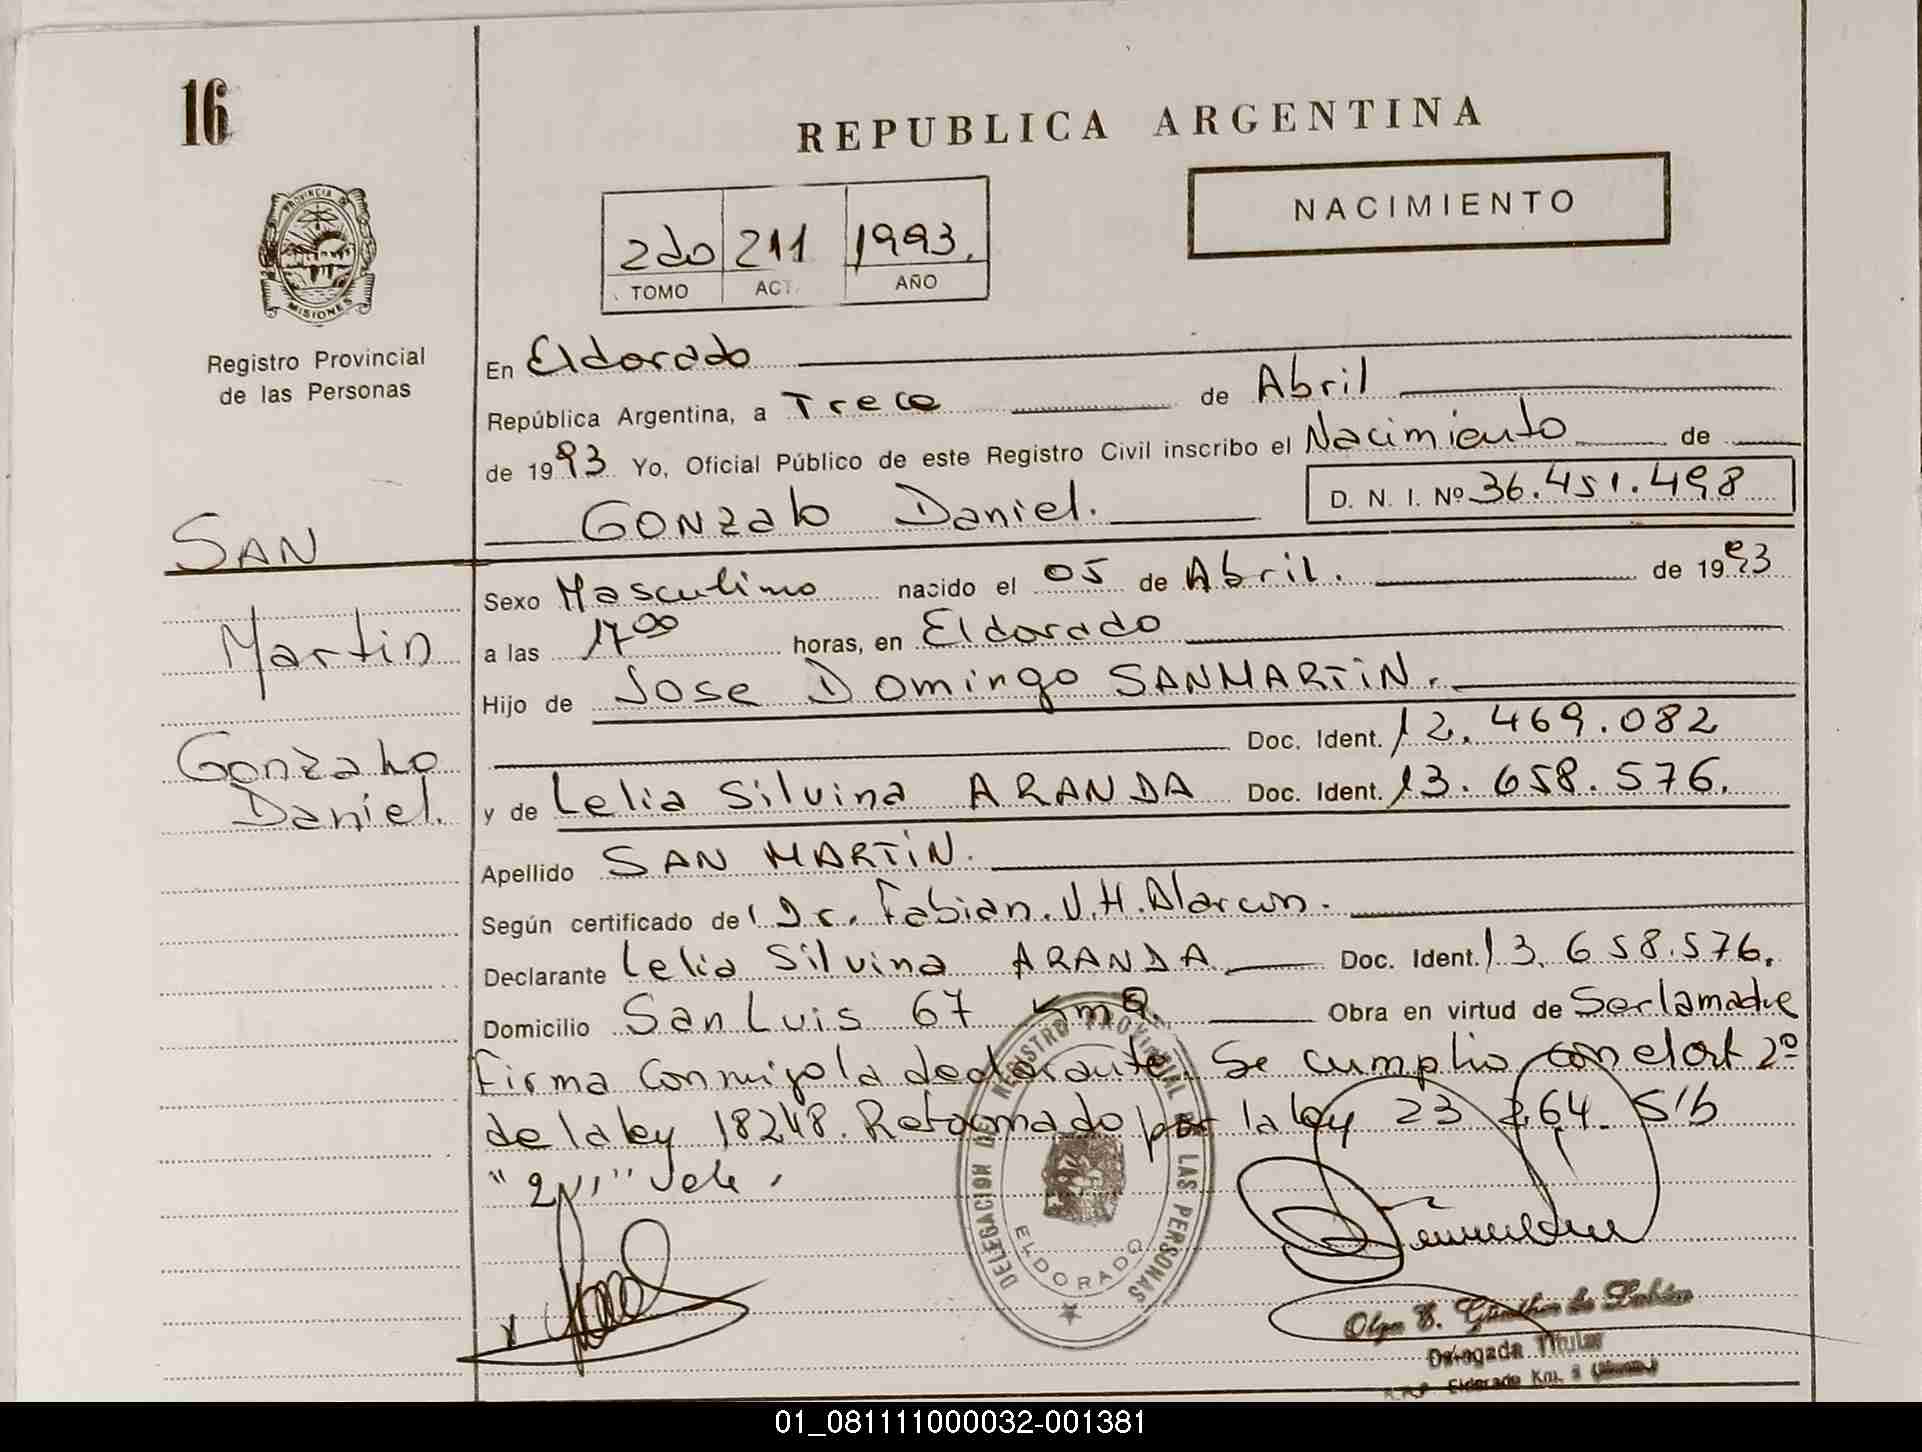 16
REPUBLICA ARGENTINA
NACIMIENTO
2do 211 1993.
TOMO ACT. AÑO
PROVINCIA DE
MISIONES
Registro Provincial
de las Personas
En Eldorado
República Argentina, a Trece de Abril
de 1993 Yo, Oficial Público de este Registro Civil inscribo el Nacimiento de
Gonzalo Daniel.
D. N. I. Nº 36.451.498
SAN
Martin
Gonzalo
Daniel.
Sexo Masculino nacido el 05 de Abril. de 1993
a las 17 00 horas, en Eldorado
Hijo de Jose Domingo SANMARTIN.
Doc. Ident. 12.469.082
y de Lelia Silvina ARANDA Doc. Ident. 13.658.576.
Apellido SAN MARTIN.
Según certificado de Dr. Fabian.J.H.Alarcon.
Declarante Lelia Silvina ARANDA Doc. Ident. 13.658.576.
Domicilio San Luis 67 Km 9. Obra en virtud de Ser la madre
Firma Conmigo la declarante. Se cumplio con el art 2º
de la ley 18248. Reformado por la ley 23 264. S/b
Vale.
DELEGACION DEL REGISTRO PROVINCIAL DE LAS PERSONAS
ELDORADO
Olga E. Günther de
Delegada Titular
Eldorado Km. 9
01_081111000032-001381